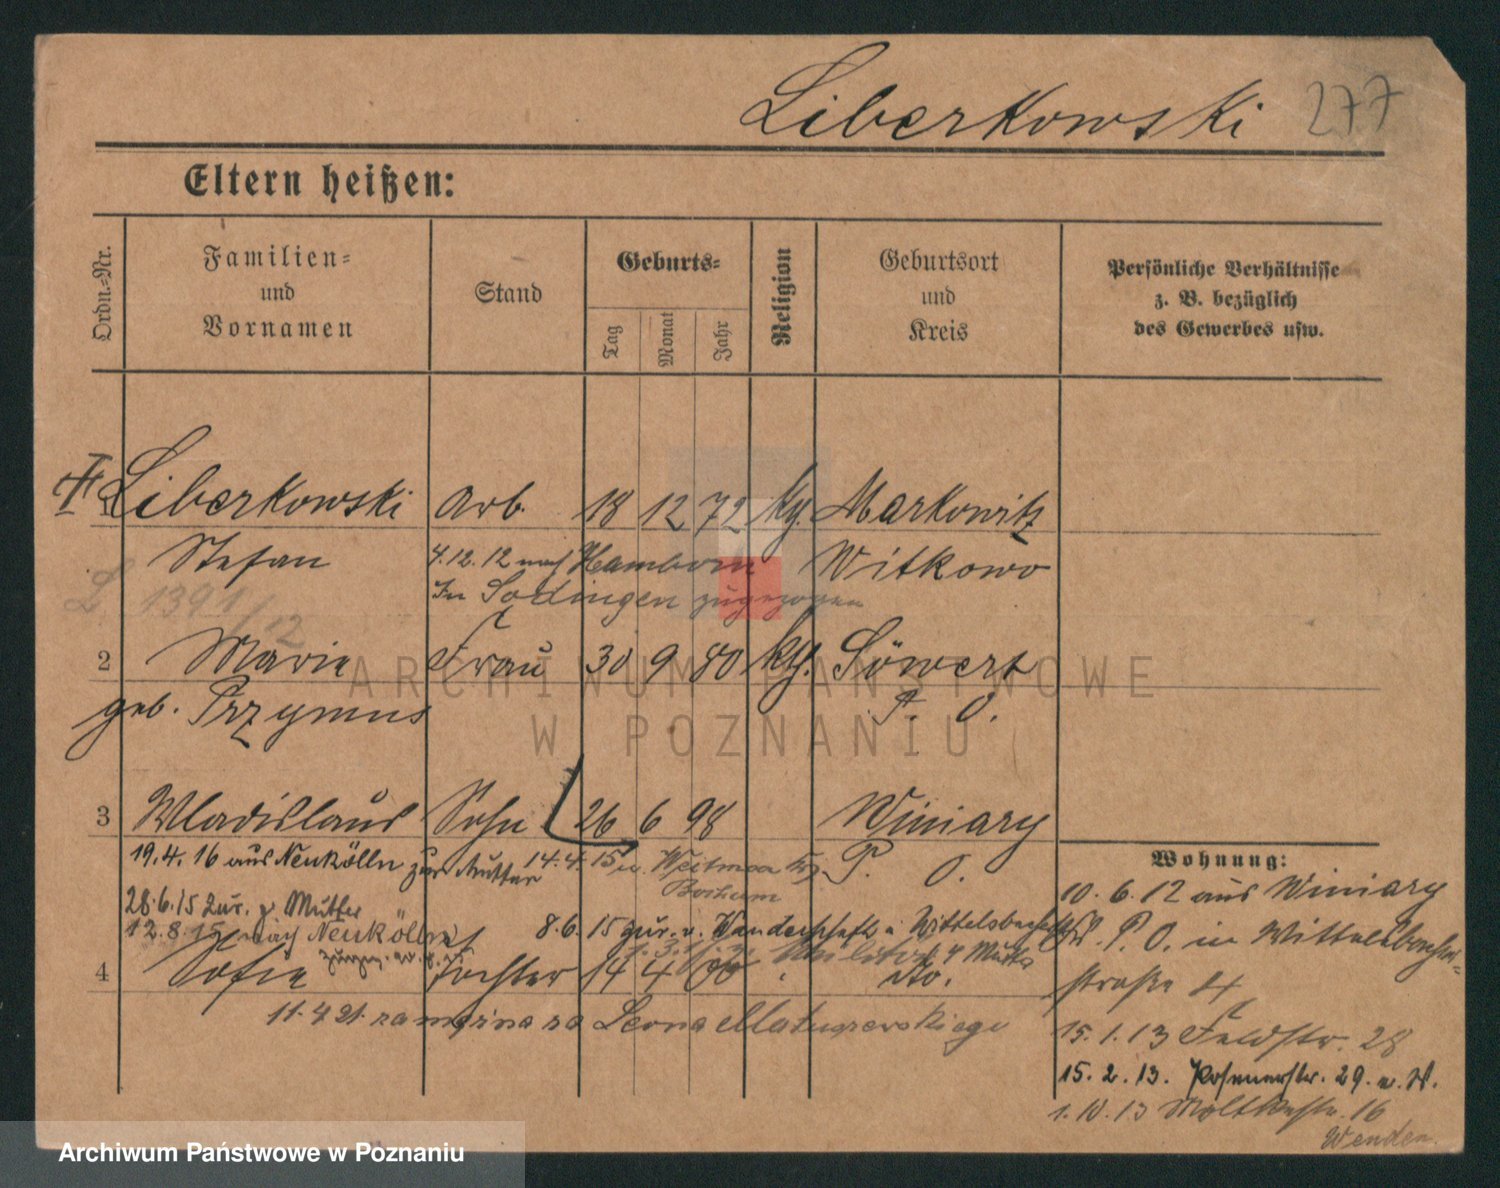 Liberkowski 277
Eltern heißen:
Ordn.-Nr.
Familien-
und
Vornamen
Stand
Geburts-
Tag
Monat
Jahr
Religion
Geburtsort
und
Kreis
Persönliche Verhältnisse
z. B. bezüglich
des Gewerbes usw.
1 Liberkowski Arb. 18 12 72 kg. Markowitz
Stefan 4.12.12 nach Hamborn Witkowo
In Sodingen zugezogen
L 1391/12
2 Marie Frau 30 9 80 kg. Söwert
geb. Przymus P. O.
ARCHIWUM PAŃSTWOWE
W POZNANIU
3 Wladislaus Sohn 26 6 98 Winiary
19.4.16 aus Neukölln zur Mutter 14.4.15 n. Weitmar P. O.
Bochum
28.6.15 zur. z. Mutter
12.8.15 nach Neukölln
8.6.15 zur. v. Wanderschaft
4 Sofie Tochter 14 4 00 dto.
11.4.21 zamężna za Leona Matuszewskiego
Wohnung:
10.6.12 aus Winiary
P. O. in Wittelsbacher-
straße 4
15.1.13 Feldstr. 28
15.2.13. Posenerstr. 29. a. W.
1.10.13 Moltkestr. 16
Wenden.
Archiwum Państwowe w Poznaniu